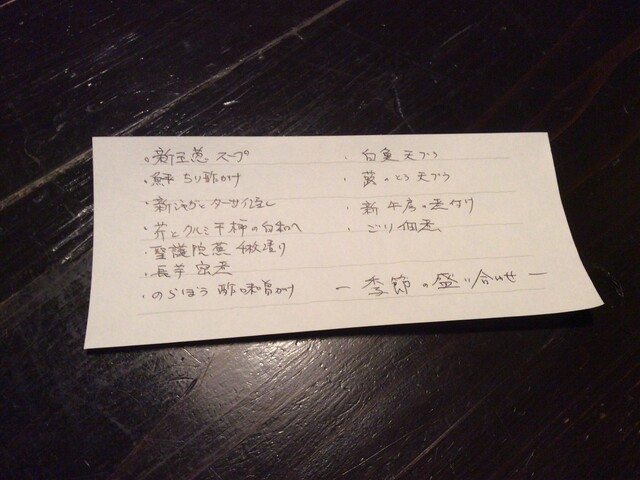 ・新玉葱 スープ
・鮃 ちり酢かけ
・新ジャガとターサイ浸し
・芹とクルミ干柿の白和へ
・聖護院蕪
・長芋 含煮
・のらぼう 酢味噌がけ
・白魚天ぷら
・蕗のとう天ぷら
・新牛房の煮付け
・ごり佃煮
ー季節の盛り合わせー